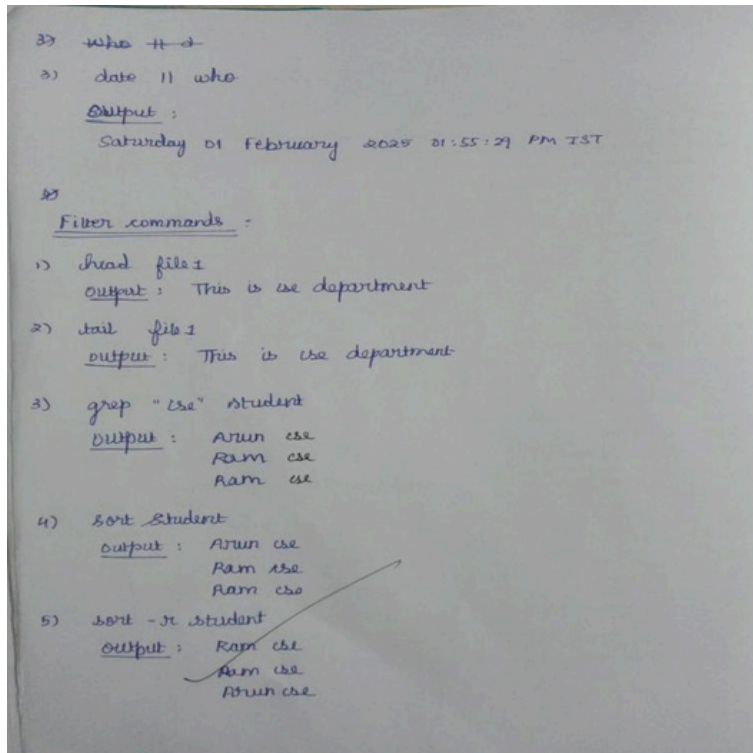 3) who || d
3) date || who
Output :
Saturday 01 February 2025 01:55:29 PM IST
Filter commands :-
1) head file1
output : This is cse department
2) tail file1
output : This is cse department
3) grep "cse" student
output : Arun cse
Ram cse
Ram cse
4) sort student
output : Arun cse
Ram cse
Ram cse
5) sort -r student
output : Ram cse
Ram cse
Arun cse